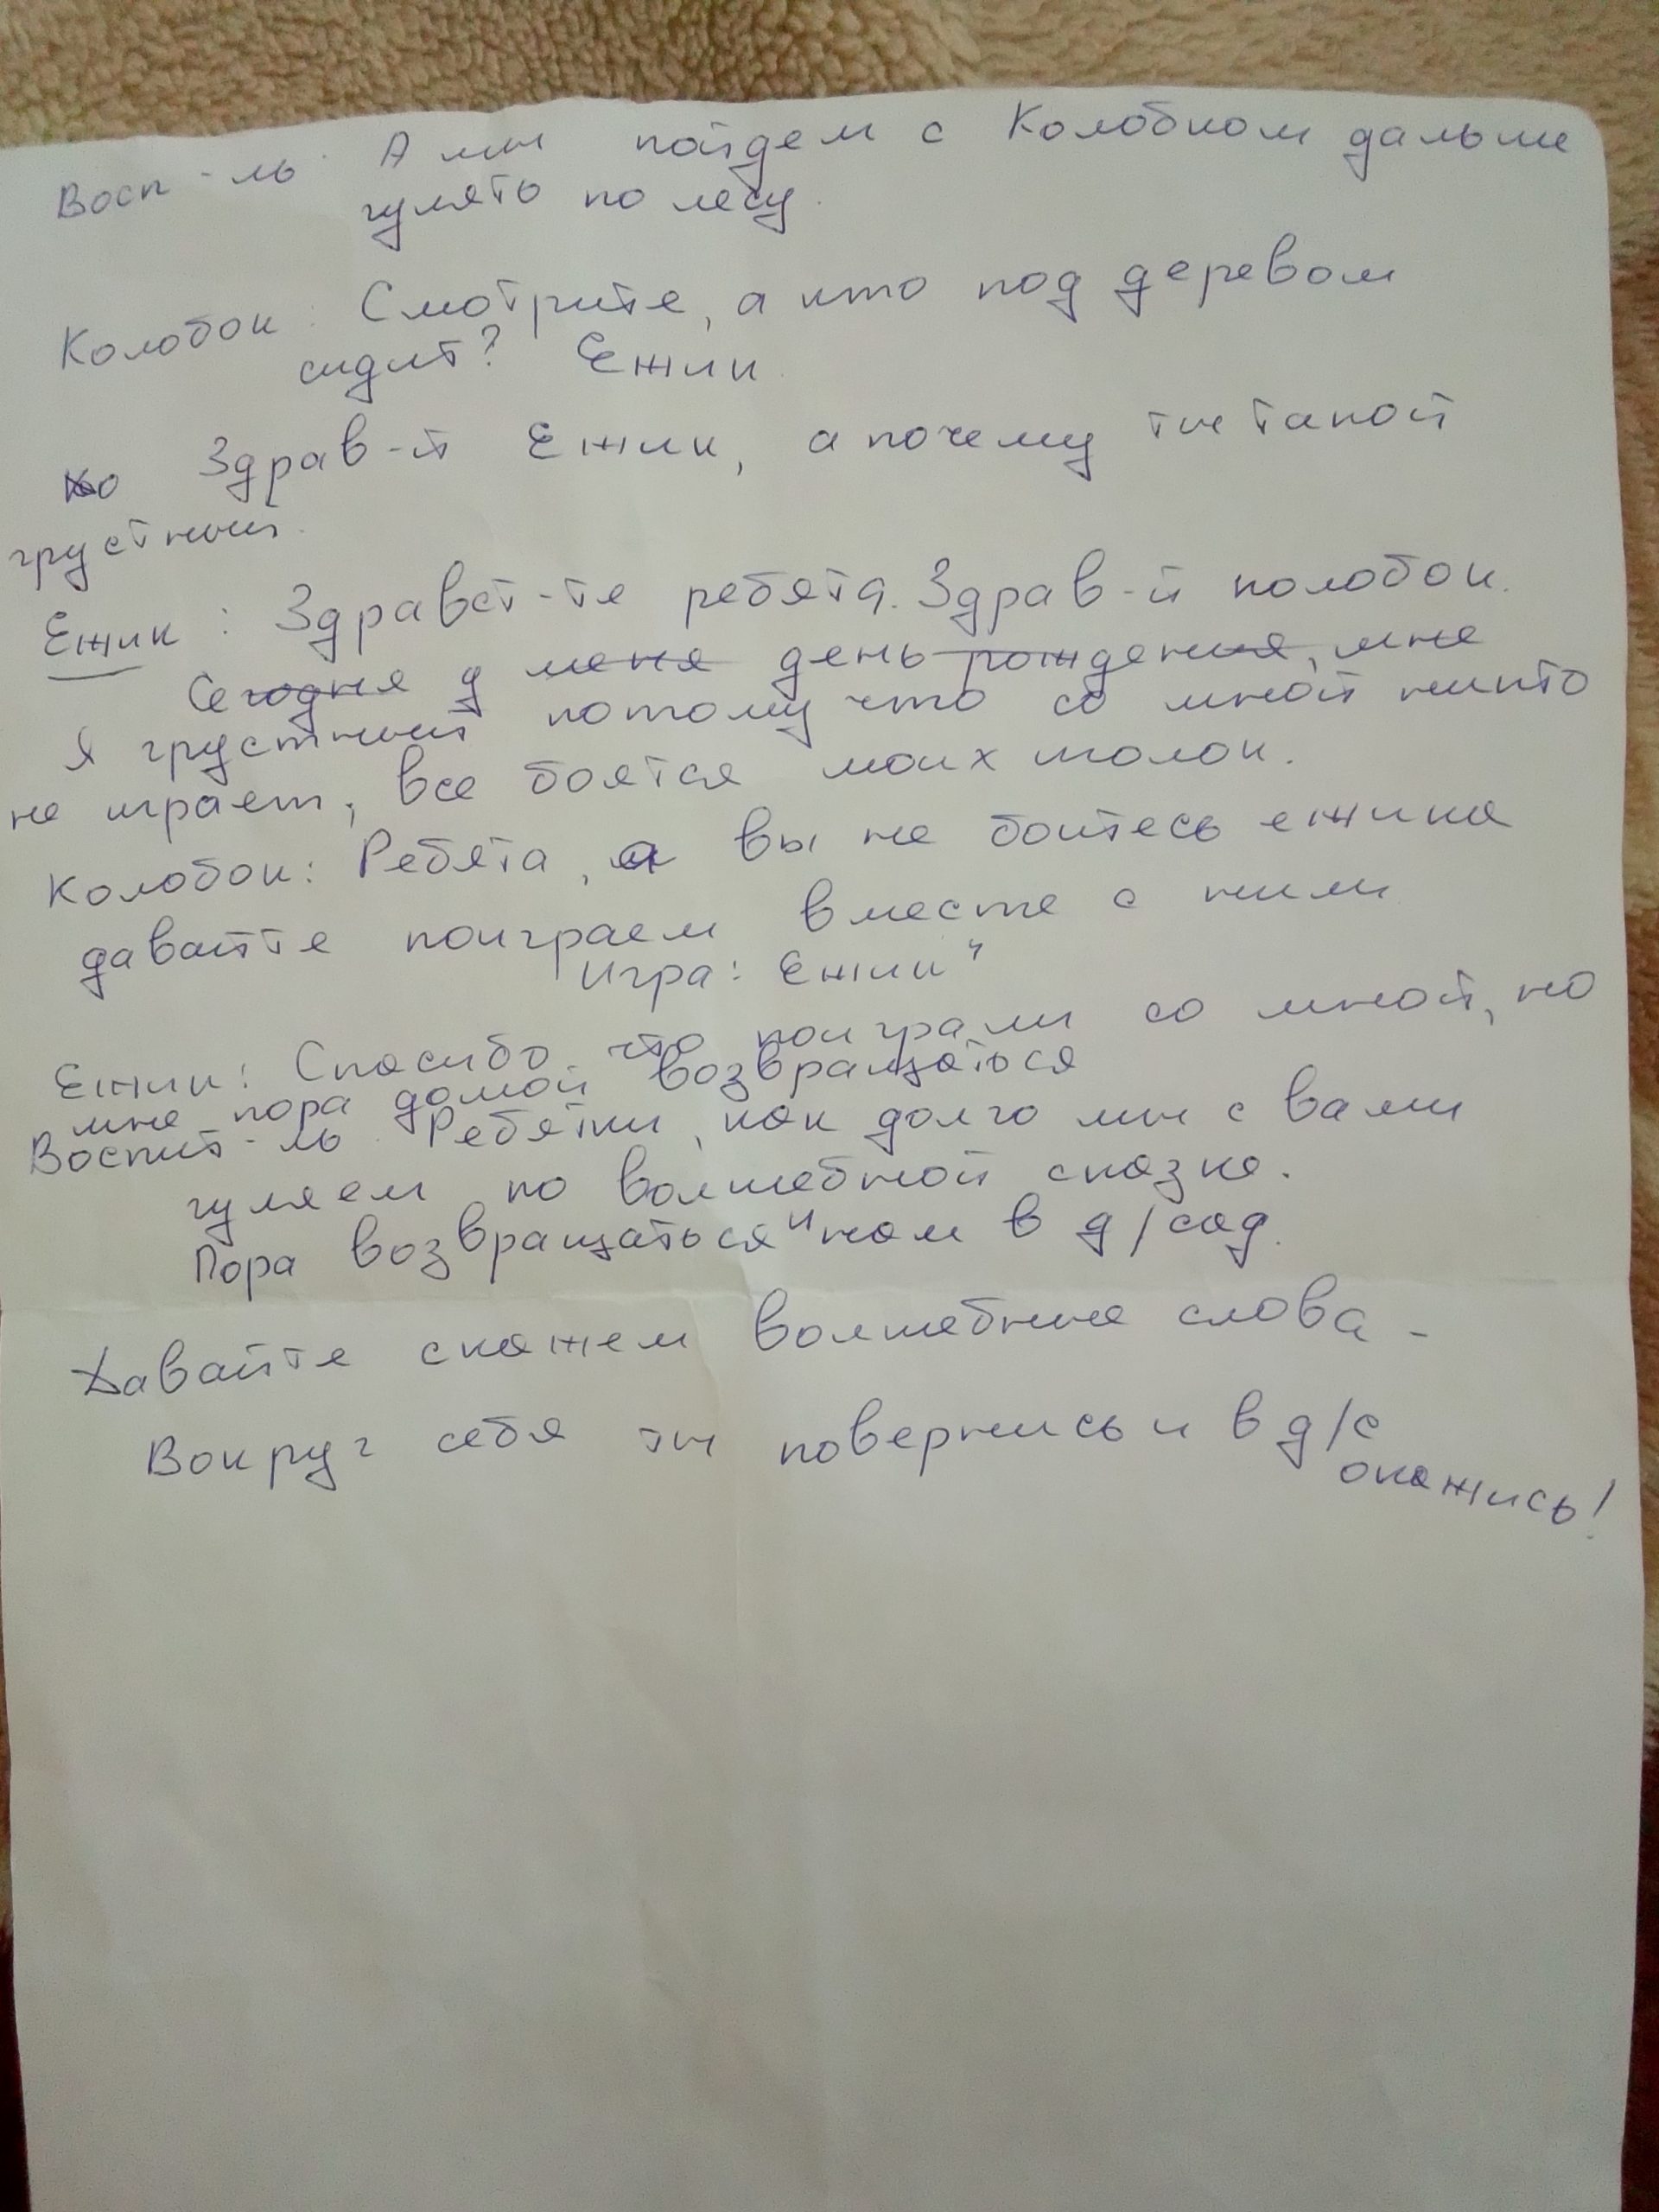 Восп-ль. А мы пойдем с Колобком дальше
гулять по лесу.
Колобок: Смотрите, а кто под деревом
сидит? Ежик.
Здрав-й Ежик, а почему ты такой
грустный.
Ежик: Здравст-те ребята. Здрав-й колобок.
Сегодня у меня день рождения, мне
Я грустный потому что со мной никто
не играет, все боятся моих иголок.
Колобок: Ребята, а вы не боитесь ежика
давайте поиграем вместе с ним
Игра: Ежик"
Ежик: Спасибо, что поиграли со мной, но
мне пора домой возвращаться
Воспит-ль. Ребятки, как долго мы с вами
гуляем по волшебной сказке.
Пора возвращаться и нам в д/сад.
Давайте скажем волшебные слова -
Вокруг себя ты повернись и в д/с
окажись!